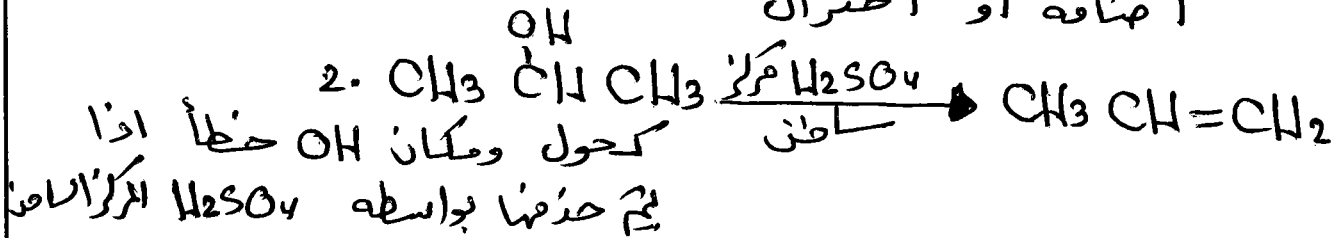 اضافه او اختزال
OH
2. CH3 CH CH3 مركز H2SO4 CH3 CH=CH2
ساخن
كحول ومكان OH خطأ اذا
يتم حذفها بواسطه H2SO4 المركز الساخن